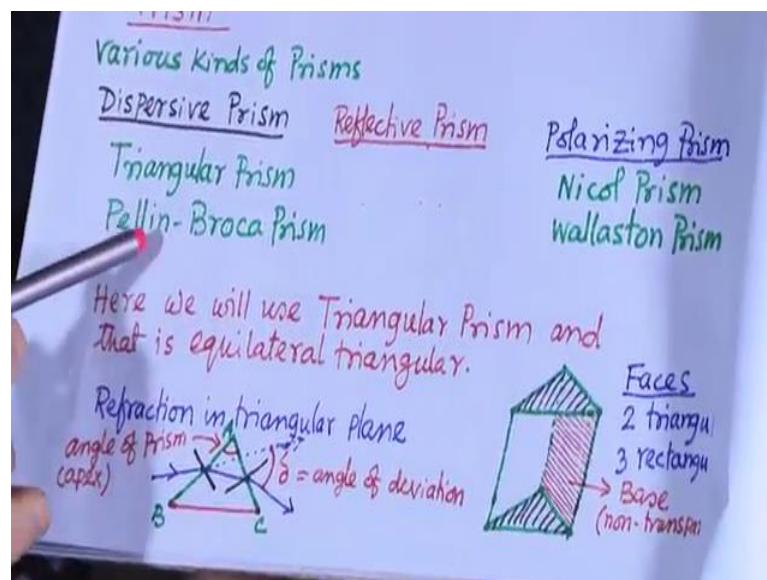 Prism
Various Kinds of Prisms
Dispersive Prism
Reflective Prism
Polarizing Prism
Triangular Prism
Nicol Prism
Pellin-Broca Prism
Wallaston Prism
Here we will use Triangular Prism and
that is equilateral triangular.
Refraction in triangular plane
angle of Prism
(apex)
A
δ = angle of deviation
B
C
Faces
2 triangu
3 rectangu
Base
(non-transpar